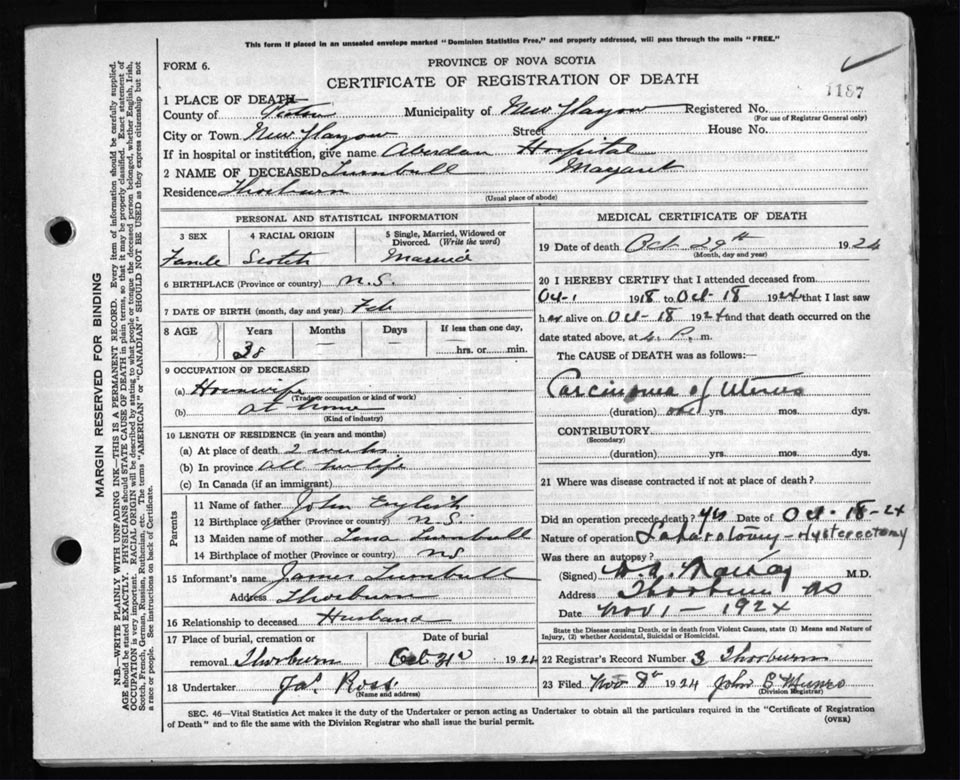 This form if placed in an unsealed envelope marked "Dominion Statistics Free," and properly addressed, will pass through the mails "FREE."
FORM 6.
PROVINCE OF NOVA SCOTIA
CERTIFICATE OF REGISTRATION OF DEATH
1187
1 PLACE OF DEATH—
County of Pictou Municipality of New Glasgow Registered No.
(For use of Registrar General only)
City or Town New Glasgow Street House No.
If in hospital or institution, give name Aberdeen Hospital
2 NAME OF DECEASED Turnbull Margaret
Residence Thorburn
(Usual place of abode)
PERSONAL AND STATISTICAL INFORMATION
3 SEX 4 RACIAL ORIGIN 5 Single, Married, Widowed or Divorced. (Write the word)
Female Scotch Married
6 BIRTHPLACE (Province or country) N.S.
7 DATE OF BIRTH (month, day and year) Feb
8 AGE Years Months Days If less than one day,
38 — — hrs. or min.
9 OCCUPATION OF DECEASED
(a) Housewife
(Trade occupation or kind of work)
(b) at home
(Kind of industry)
10 LENGTH OF RESIDENCE (in years and months)
(a) At place of death 2 weeks
(b) In province all her life
(c) In Canada (if an immigrant)
Parents
11 Name of father John English
12 Birthplace of father (Province or country) N.S.
13 Maiden name of mother Turnbull
14 Birthplace of mother (Province or country) NS
15 Informant's name James Turnbull
Address Thorburn
16 Relationship to deceased Husband
17 Place of burial, cremation or Date of burial
removal Thorburn Oct 31 1924
18 Undertaker Jas. Ross
(Name and address)
MEDICAL CERTIFICATE OF DEATH
19 Date of death Oct 29th 1924
(Month, day and year)
20 I HEREBY CERTIFY that I attended deceased from
Oct-1 1918 to Oct-18 1924 that I last saw
her alive on Oct-18 1924 and that death occurred on the
date stated above, at P. m.
The CAUSE of DEATH was as follows:—
Carcinoma of Uterus
(duration) one yrs. mos. dys.
CONTRIBUTORY
(Secondary)
(duration) yrs. mos. dys.
21 Where was disease contracted if not at place of death?
Did an operation precede death? yes Date of Oct-18-24
Nature of operation Laparotomy-Hysterectomy
Was there an autopsy?
(Signed) M.D.
Address Thorburn NS
Date Nov 1-1924
State the Disease causing Death, or in death from Violent Causes, state (1) Means and Nature of Injury, (2) whether Accidental, Suicidal or Homicidal.
22 Registrar's Record Number 3 Thorburn
23 Filed Nov 8th 1924 John B Munro
(Division Registrar)
SEC. 46—Vital Statistics Act makes it the duty of the Undertaker or person acting as Undertaker to obtain all the particulars required in the "Certificate of Registration
of Death" and to file the same with the Division Registrar who shall issue the burial permit.
(OVER)
MARGIN RESERVED FOR BINDING
N.B.—WRITE PLAINLY WITH UNFADING INK—THIS IS A PERMANENT RECORD. Every item of information should be carefully supplied.
AGE should be stated EXACTLY. PHYSICIANS should STATE CAUSE OF DEATH in plain terms, so that it may be properly classified. Exact statement of
OCCUPATION is very important. RACIAL ORIGIN will be described by stating to what people or tongue the deceased person belonged, whether English, Irish,
Scotch, French, German, Russian, Ruthenian, etc. The terms "AMERICAN" or "CANADIAN" SHOULD NOT BE USED as they express citizenship but not
a race or people. See instructions on back of Certificate.